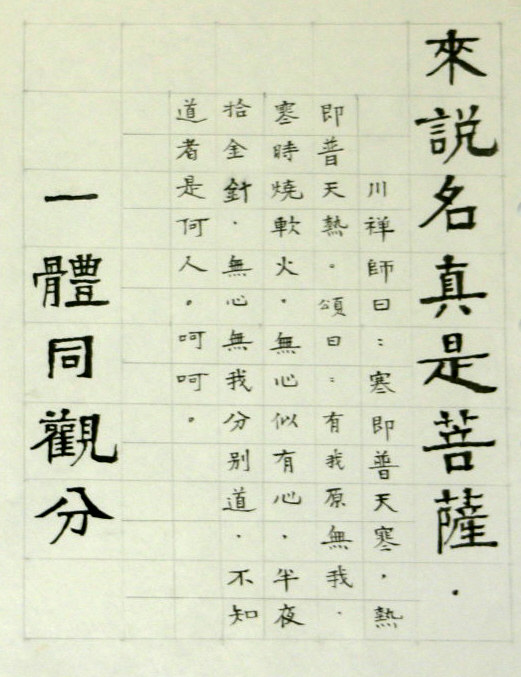 來説名真是菩薩．
川禅師曰：寒即普天寒，熱
即普天熱。頌曰：有我原無我．
寒時燒軟火．無心似有心．半夜
拾金針．無心無我分别道．不知
道者是何人。呵呵。
一體同觀分